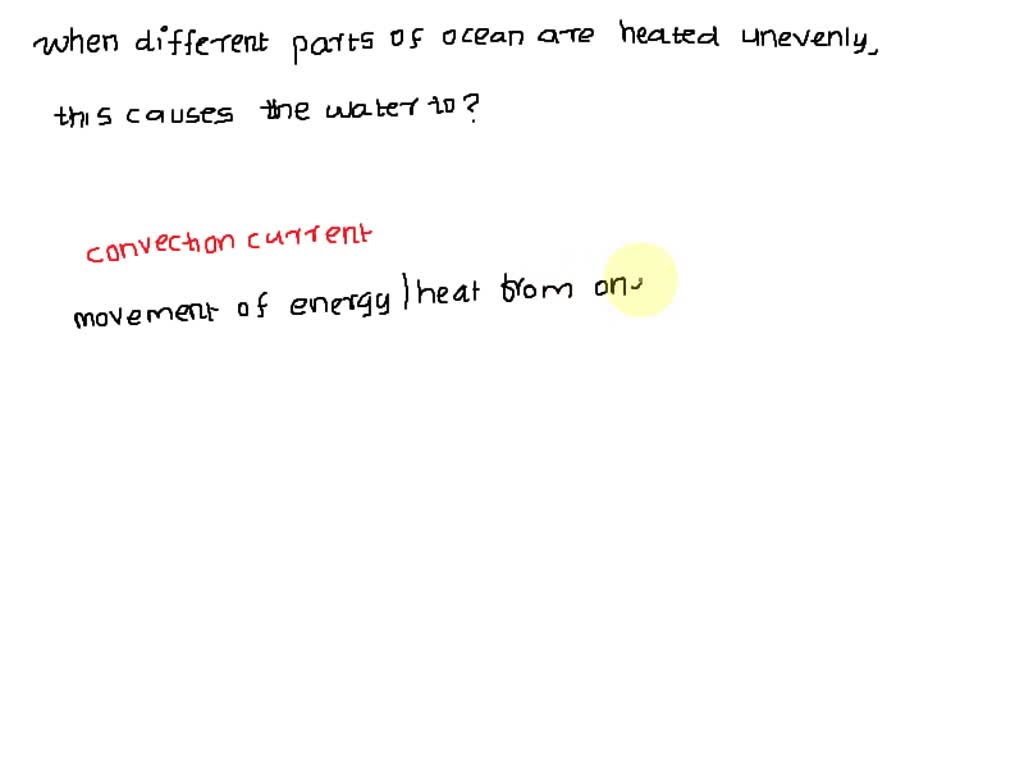 when different parts of ocean are heated unevenly,
this causes the water to?
convection current
movement of energy / heat from on